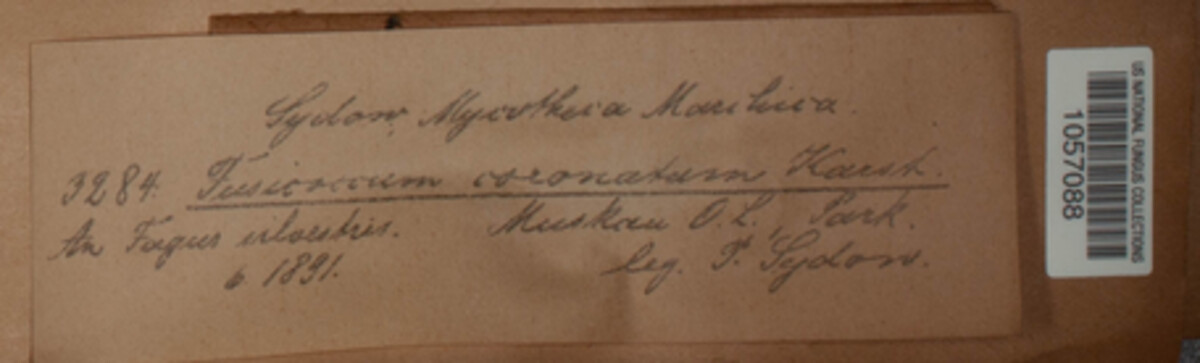 Sydow, Mycotheca Marchica.
3284. Fusicoccum coronatum Karst.
An Fagus silvestris. Muskau O. L., Park.
6 1891. leg. P. Sydow.
US NATIONAL FUNGUS COLLECTIONS
1057088